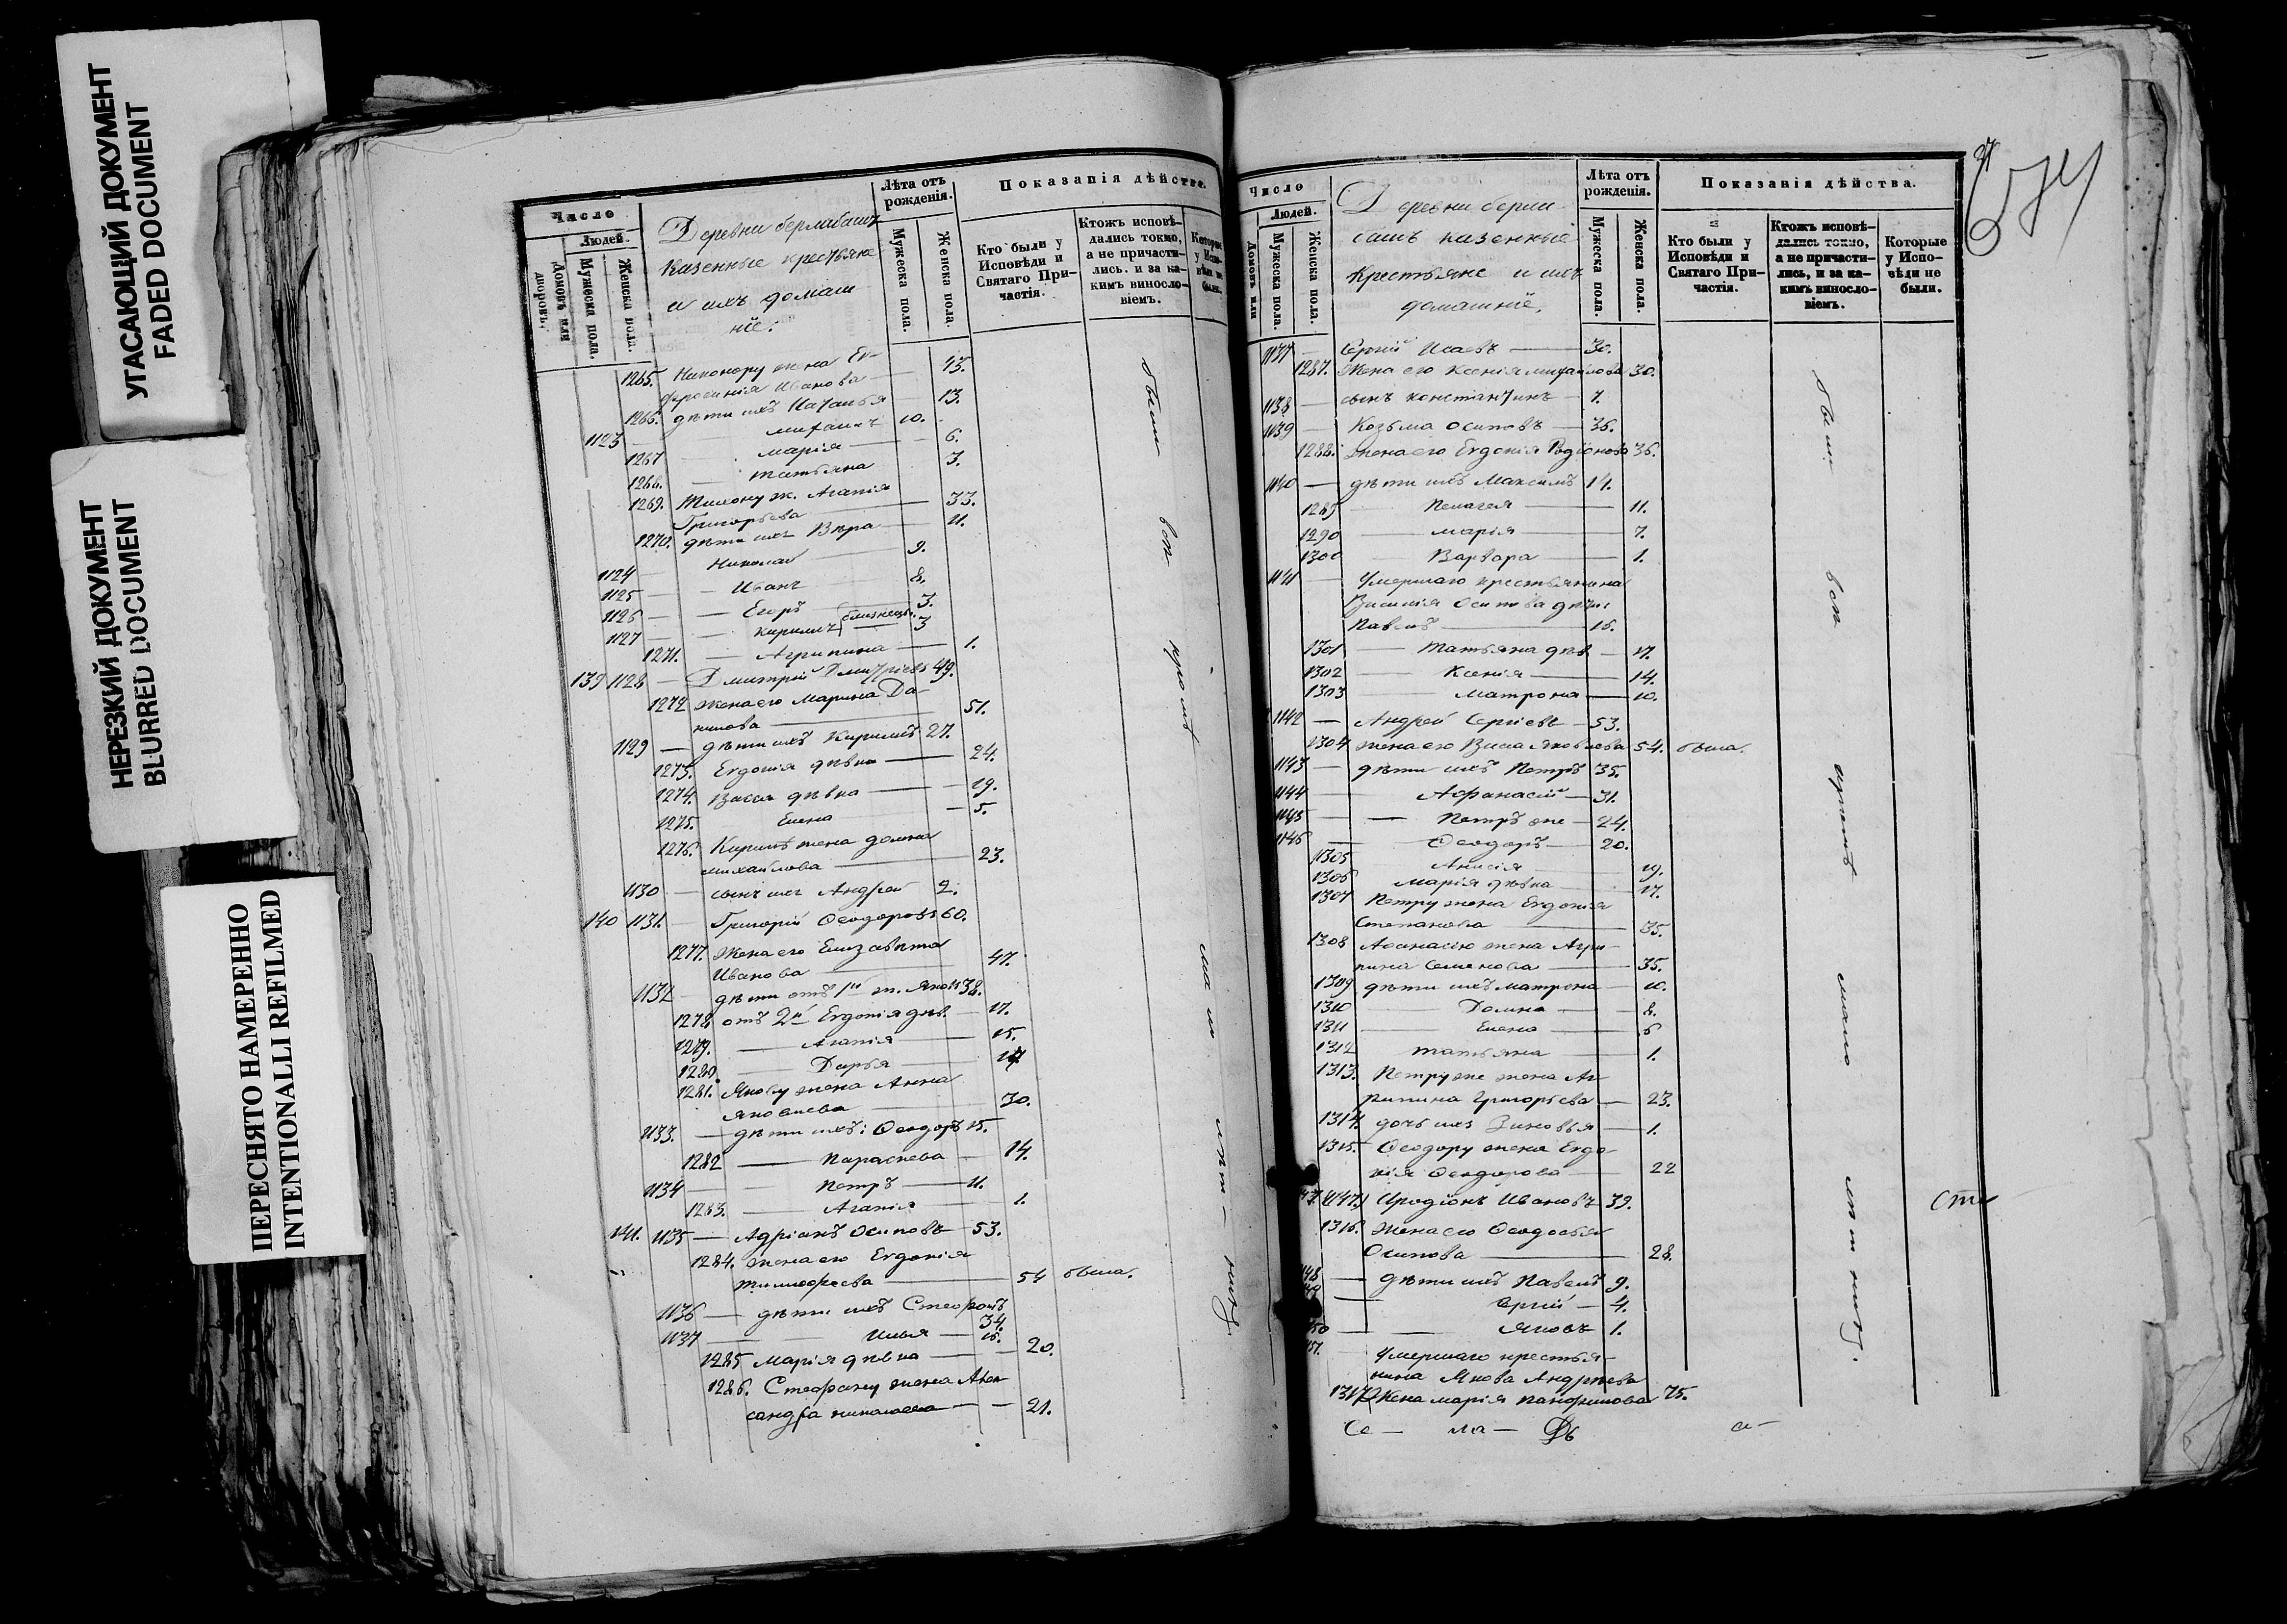 УГАСАЮЩИЙ ДОКУМЕНТ
FADED DOCUMENT
НЕРЕЗКИЙ ДОКУМЕНТ
BLURRED DOCUMENT
ПЕРЕСНЯТО НАМЕРЕННО
INTENTIONALLI REFILMED
Число
Людей.
Домовъ или дворовъ.
Мужеска пола.
Женска пола.
Деревни бермибашъ
казенные крестьяне
и ихъ домаш
нiе:
Лѣта отъ рожденія.
Мужеска пола.
Женска пола.
Показанія дѣйства.
Кто были у Исповѣди и Святаго Причастія.
Ктожъ исповѣдались токмо, а не причастились. и за каким винословіемъ.
Которые у Исповѣди не были.
1265. Никонору жена Ев-
фросинія Иванова 43.
1266. дѣти ихъ Наталья 13.
1123 Михаилъ 10.
1267 Марія 6.
1268. Татьяна 3.
1269. Тихону ж. Агапія
Григорьева 33.
1270. дѣти ихъ Вѣра 11.
1124 Николай 9.
1125 Иванъ 8.
1126 Егоръ 3.
1127 Кирилъ близнецы 3
1271. Агрипина 1.
139 1128 Дмитрій Дмитріевъ 49.
1272 жена его Марина Да-
нилова 51.
1129 дѣти ихъ Кирилъ 27.
1273. Евдокія дѣвка 24.
1274. Васса дѣвка 19.
1275. Елена 5.
1276. Кирилѣ жена Домна
Михайлова 23.
1130 сынъ ихъ Андрей 2.
140 1131. Григорій Ѳеодоровъ 60.
1277. Жена его Елизавѣта
Иванова 47.
1132 дѣти отъ 1й ж. Яковъ 38.
1278 отъ 2й Евдокія дѣв. 17.
1279. Агапія 15.
1280. Дарья
1281. Якову жена Анна
Яковлева 30.
1133. дѣти ихъ: Ѳеодоръ 15.
1282 Параскева 14.
1134 Петръ 11.
1283. Агапія 1.
141. 1135 Адріанъ Осиповъ 53.
1284. жена его Евдокія
Тимофеева 54 была.
1136 дѣти ихъ Стефанъ
34.
1137 Илья 15.
1285 Марія дѣвка 20.
1286. Стефану жена Алек
сандра Николаева 21.
были
вси
кромѣ
Число
Людей.
Домовъ или
Мужеска пола.
Женска пола.
Деревни берми
башъ казенные
Крестьяне и ихъ
домашнiе.
Лѣта отъ рожденія.
Мужеска пола.
Женска пола.
Показанія дѣйства.
Кто были у Исповѣди и Святаго Причастія.
Ктожъ исповѣдались токмо, а не причастились, и за каким винословіемъ.
Которые у Исповѣди не были.
1137 Сергій Исаевъ 30.
1287. Жена его Ксенія Михайлова 30.
1138 сынъ Константинъ 7.
1139 Козьма Осиповъ 36.
1288. Жена его Евдокія Родіонова 36.
1140 дѣти ихъ Максимъ 14.
1289 Пелагея 11.
1290 Марія 7.
1300 Варвара 1.
1141 Умершаго крестьянина
Василія Осипова дѣти:
Павелъ 16.
1301 Татьяна дѣв. 17.
1302 Ксенія 14.
1303 Матрона 10.
1142 Андрей Сергіевъ 53.
1304 жена его Васса Яковлева 54. была.
1143 дѣти ихъ Петръ 35.
1144 Афанасій 31.
1145 Петръ же 24.
1146 Ѳеодоръ 20.
1305 Анисія 19.
1306 Марія дѣвка 17.
1307 Петру жена Евдокія
Степанова 35.
1308 Афанасію жена Агри-
пина Семенова 35.
1309 дѣти ихъ Матрона 10.
1310 Домна 8.
1311 Елена 6
1312 Татьяна 1.
1313. Петру же жена Аг
рипина Григорьева 23.
1314. дочь ихъ Зиновья 1.
1315. Ѳеодору жена Евдо
кія Ѳеодорова 22
1147. Иродіонъ Ивановъ 39.
1316. Жена его Ѳеодосья
Осипова 28.
48 дѣти ихъ Павелъ 9.
49 Сергій 4.
50 Яковъ 1.
151. Умершаго крестья-
нина Якова Андреева
1317 Жена Марія Панфилова 75.
Се — ла —
были
вси
кромѣ